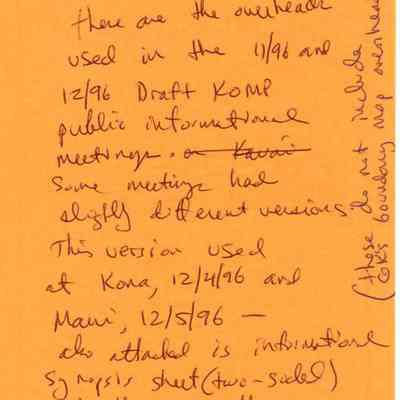 these are the overheads
used in the 11/96 and
12/96 Draft KOMP
public informational
meetings. on Kauai
Some meetings had
slightly different versions
This version used
at Kona, 12/4/96 and
Maui, 12/5/96 —
also attached is informational
synopsis sheet (two-sided)
(these do not include
GK's boundary map overheads